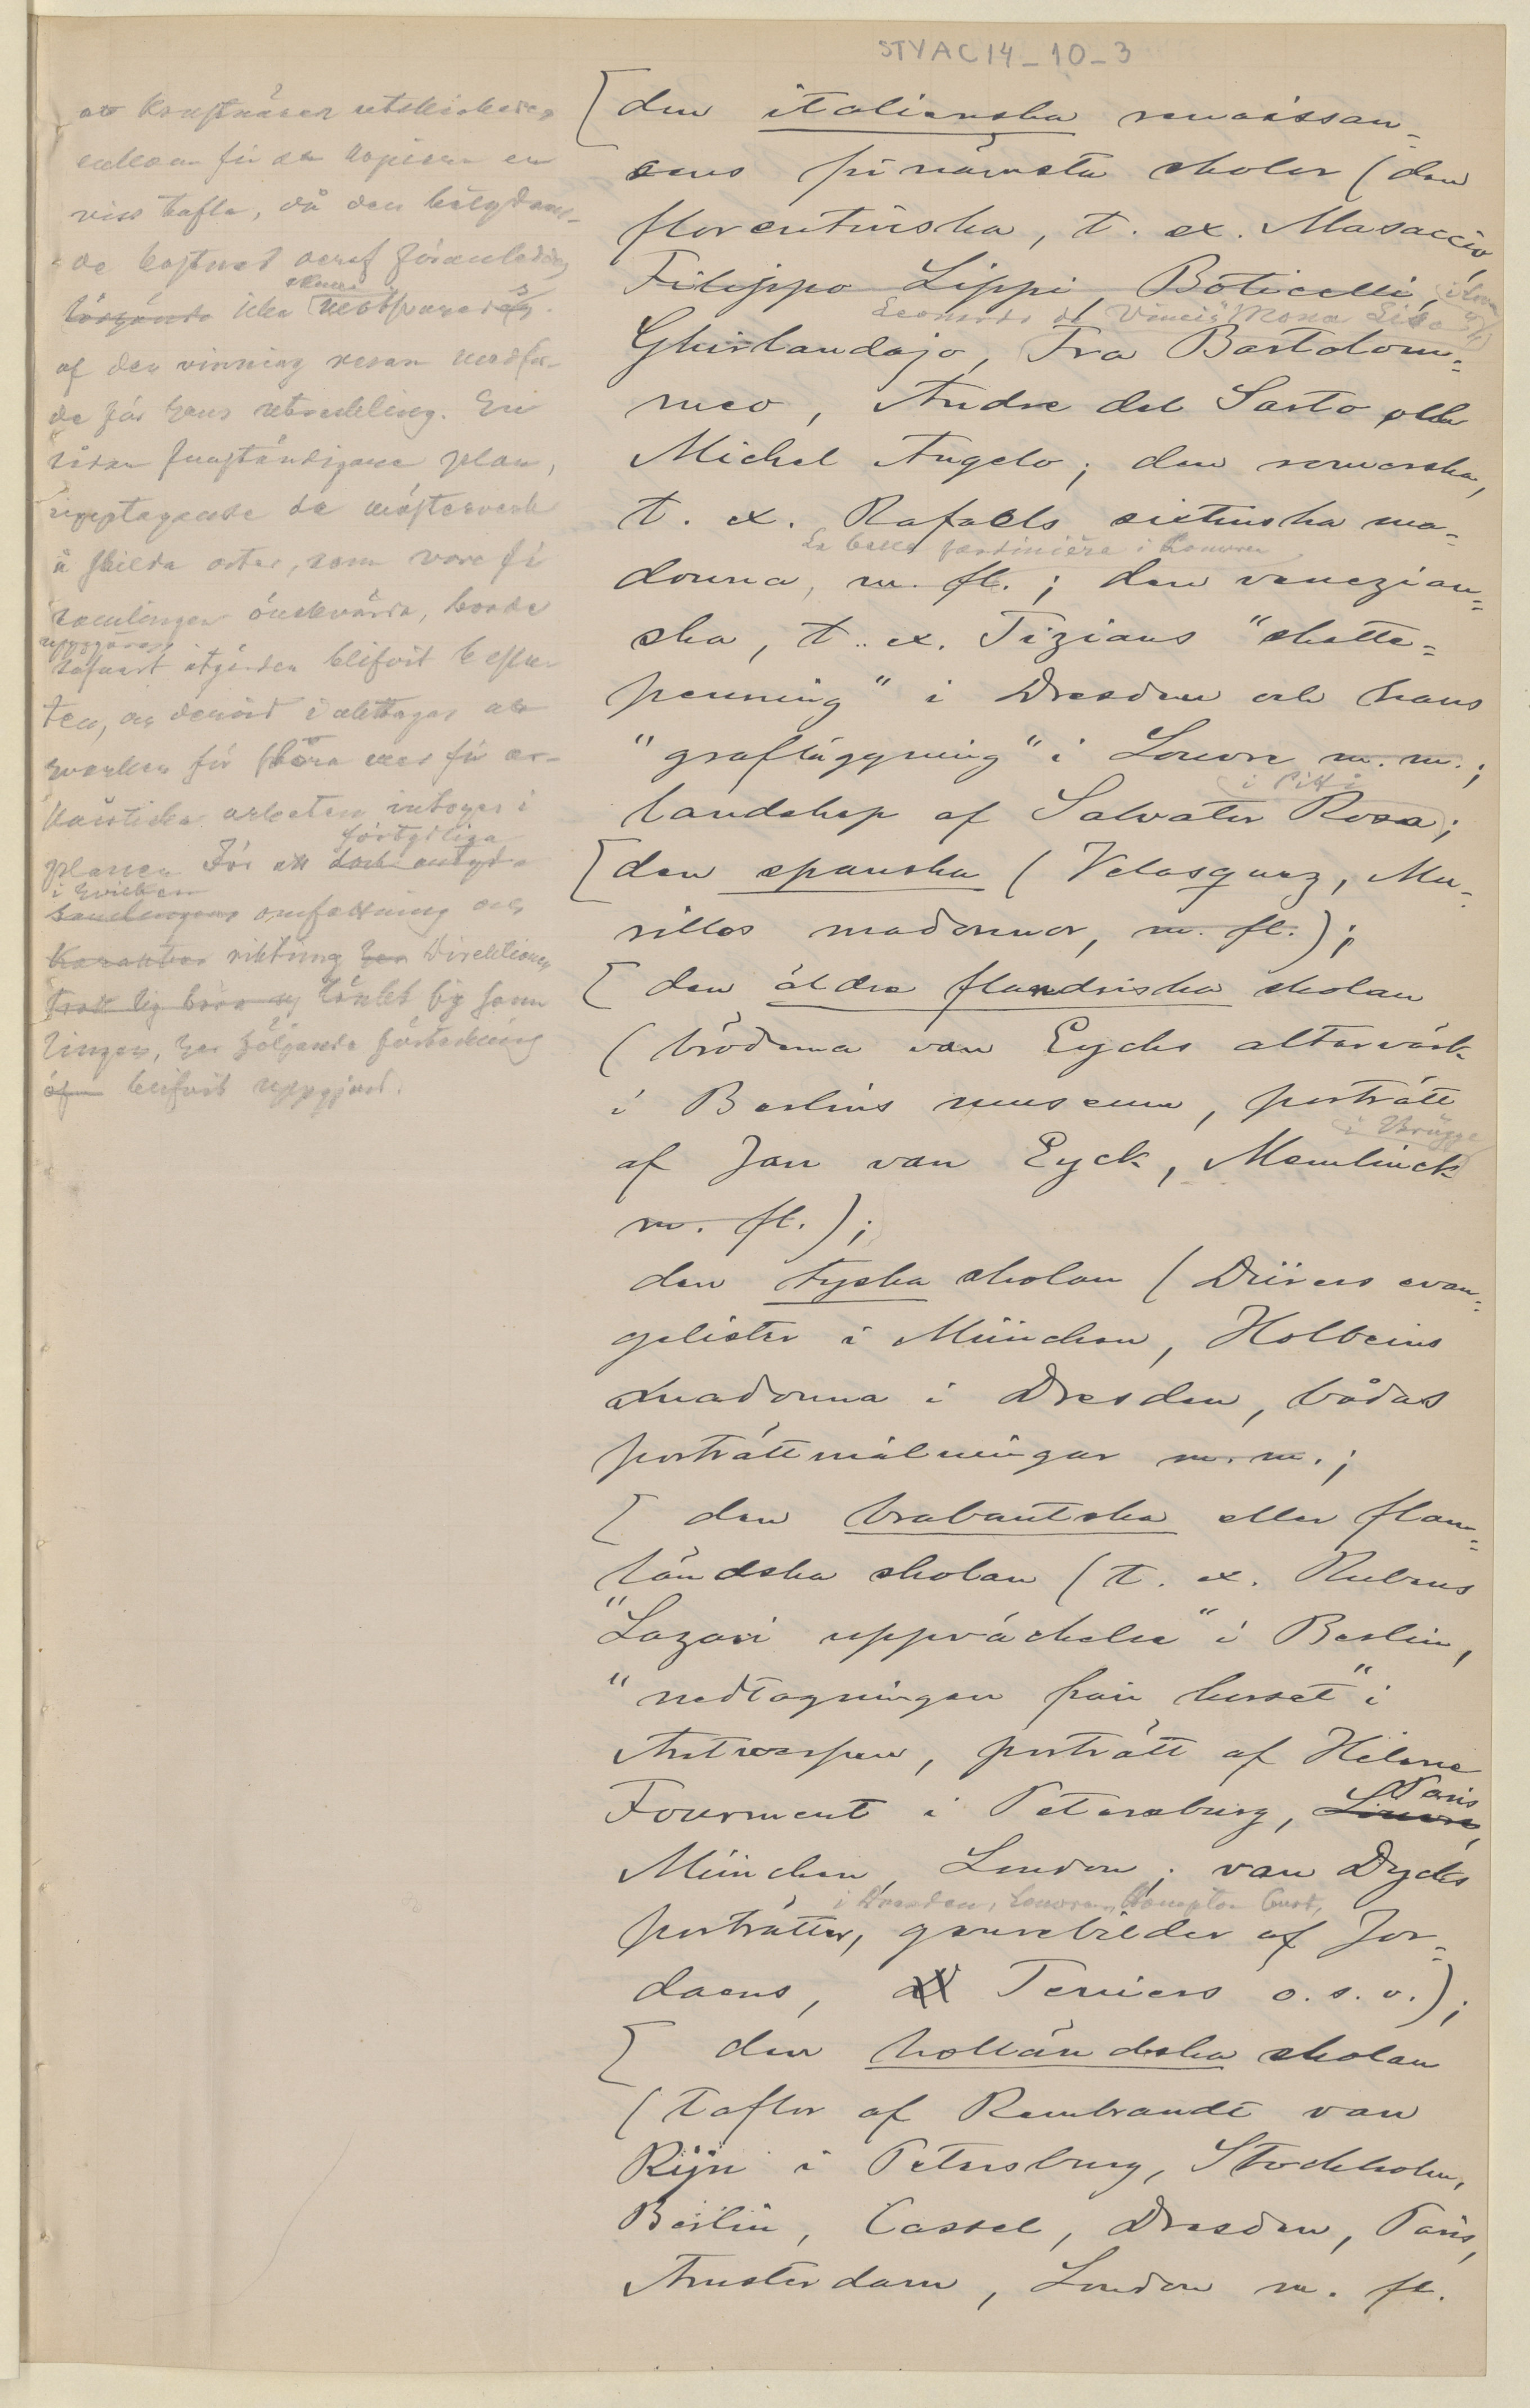 STYAC14_10_3
att konstnären utskickades
endast för att kopiera en
viss tafla, då den betydan-
de kostnad deraf föranleddes
icke
af den vinning resan medför-
de för hans utveckling. En
sådan fullständigare plan,
upptagande de mästerverk
å skilda orter, som vore för
samlingen önskvärda, borde
uppgöras
blifvit
i
hvarken för större eller för
arbeten intages i
förtydliga
planen För att
i hvilken
samlingens omfattning och
karakter riktning har Direktionen
tänkt sig sam
lingen, har följande förteckning
blifvit uppgjord.
[den italienska renaissan-
sens förnämsta skolor (den
florentinska, t. ex. Masaccio,
Filippo Lippi, Boticelli,
Leonardo da Vincis Mona Lisa
Ghirlandajo, Fra Bartolom-
meo, Andre del Sarto eller
Michel Angelo; den romerska,
t. ex. Rafaels sixtinska ma-
La belle jardinière i Louvren
donna, m. fl.; den venezian-
ska, t. ex. Tizians "skatte-
penning" i Dresden och hans
"grafläggning" i Louvre m. m.;
i Pitti
landskap af Salvator Rosa;
[den spanska (Velasquez, Mu-
rillos madonnor, m. fl.);
[den äldre flandriska skolan
(bröderna van Eycks altarvärk
i Berlins museum, porträtt
i Brügge
af Jan van Eyck, Memlinck
m. fl.);
den tyska skolan (Dürers evan-
gelister i München, Holbeins
madonna i Dresden, bådas
porträttmålningar m. m.;
[den brabantska eller flam-
ländska skolan (t. ex. Rubens
"Lazari uppväckelse" i Berlin,
"nedtagningen från korset" i
Antwerpen, porträtt af Helene
Paris
Fourment i Petersburg, Louvre,
München, London; van Dycks
i Dresden, Louvren, Hampton Court,
porträtter, genrebilder af Jor-
daens, af Teniers o. s. v.);
[den holländska skolan
(taflor af Rembrandt van
Rijn i Petersburg, Stockholm,
Berlin, Cassel, Dresden, Paris,
Amsterdam, London m. fl.